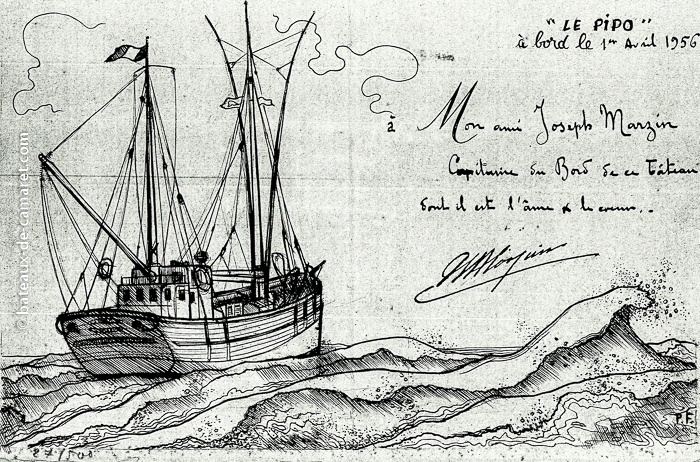 "LE PIPO"
à bord le 1er Avril 1956
à Mon ami Joseph Marzin
Capitaine du Bord de ce bâteau
dont il est l'âme & le coeur..
© bateaux-de-camaret.com
P.F.